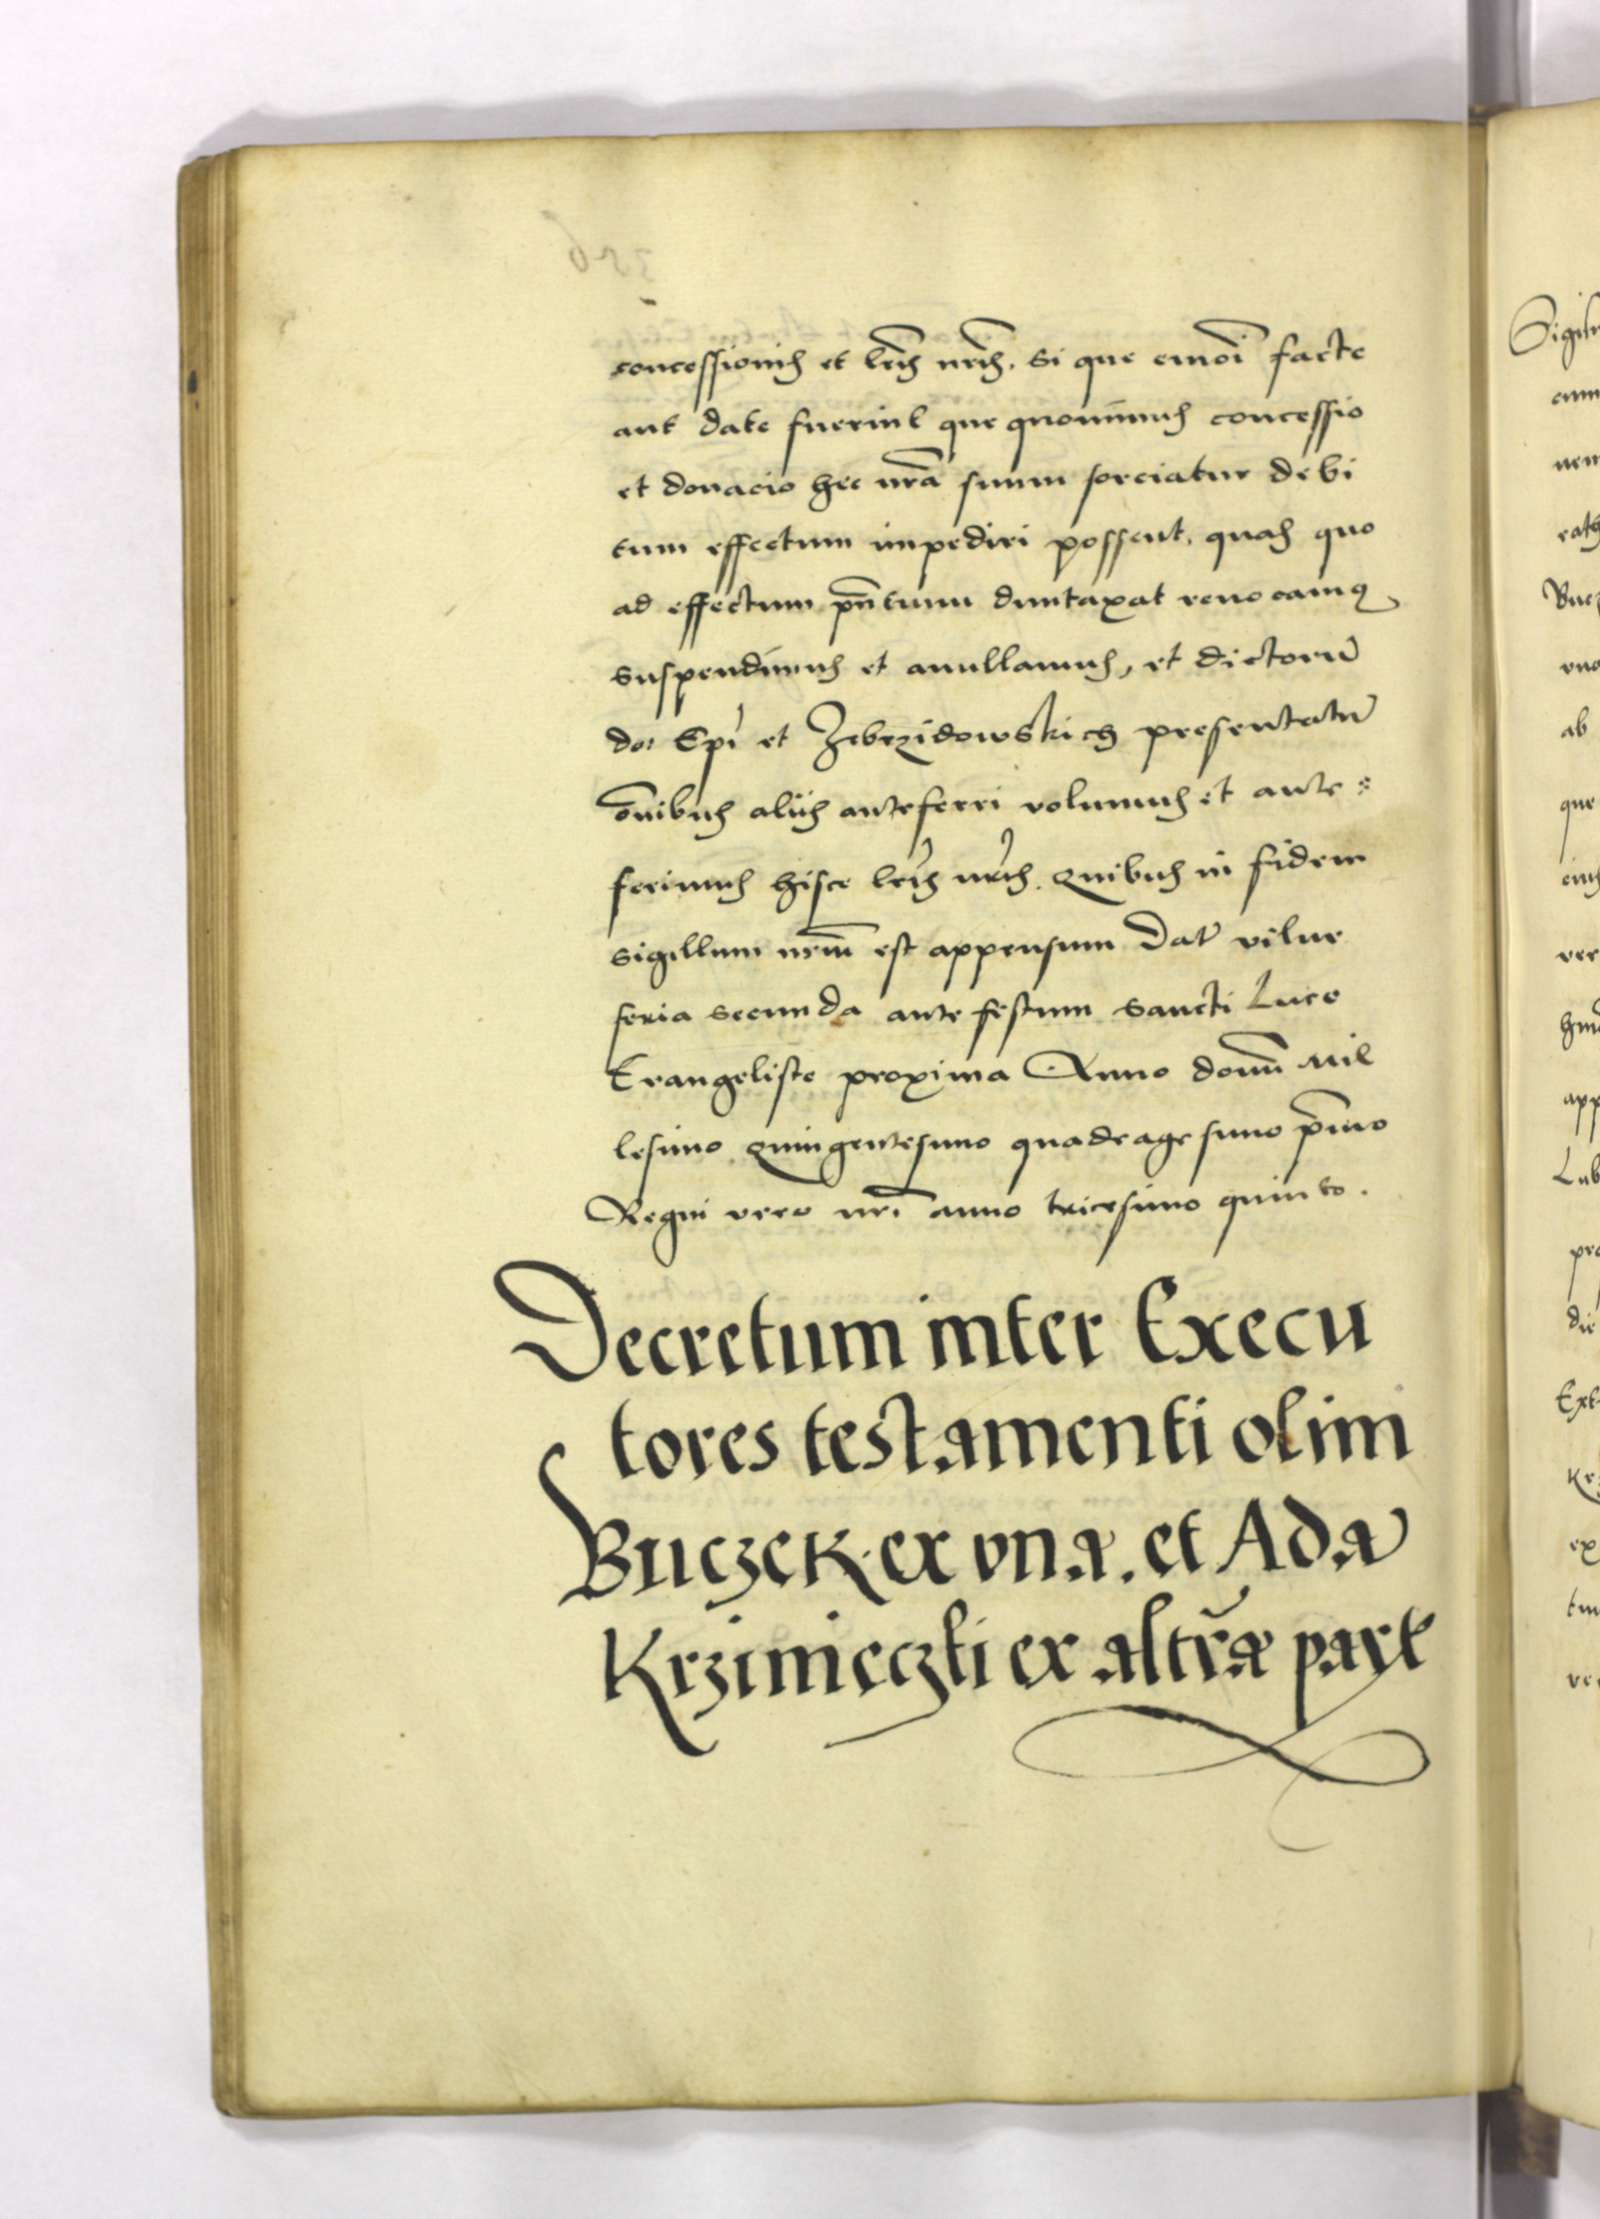 concessionib et lrīs nrīs. Si que emoi facte
aut date fuerint que quominus concessio
et donacio hec nrā suum sorciatur debi
tum effectum impediri possent, quas quo
ad effectum pn̄tium duntaxat reuocamus
suspendimus et anullamus, et dictorū
do: Epī et Zebrzidowskich presentatū
om̄ibus aliis anteferri volumus et ante
ferimus hisce lrīs nrīs. Quibus in fidem
sigillum nrm̄ est appensum Dat̄ vilne
feria secunda ante festum Sancti Luce
Evangeliste proxima Anno domī Mil
lesimo Quingentesimo quadragesimo p̄mo
Regni vero nrī anno tricesimo quinto.
Decretum inter Execu
tores testamenti olim
Buczek. ex vna. et Ada
Krzinieczki ex altrā part